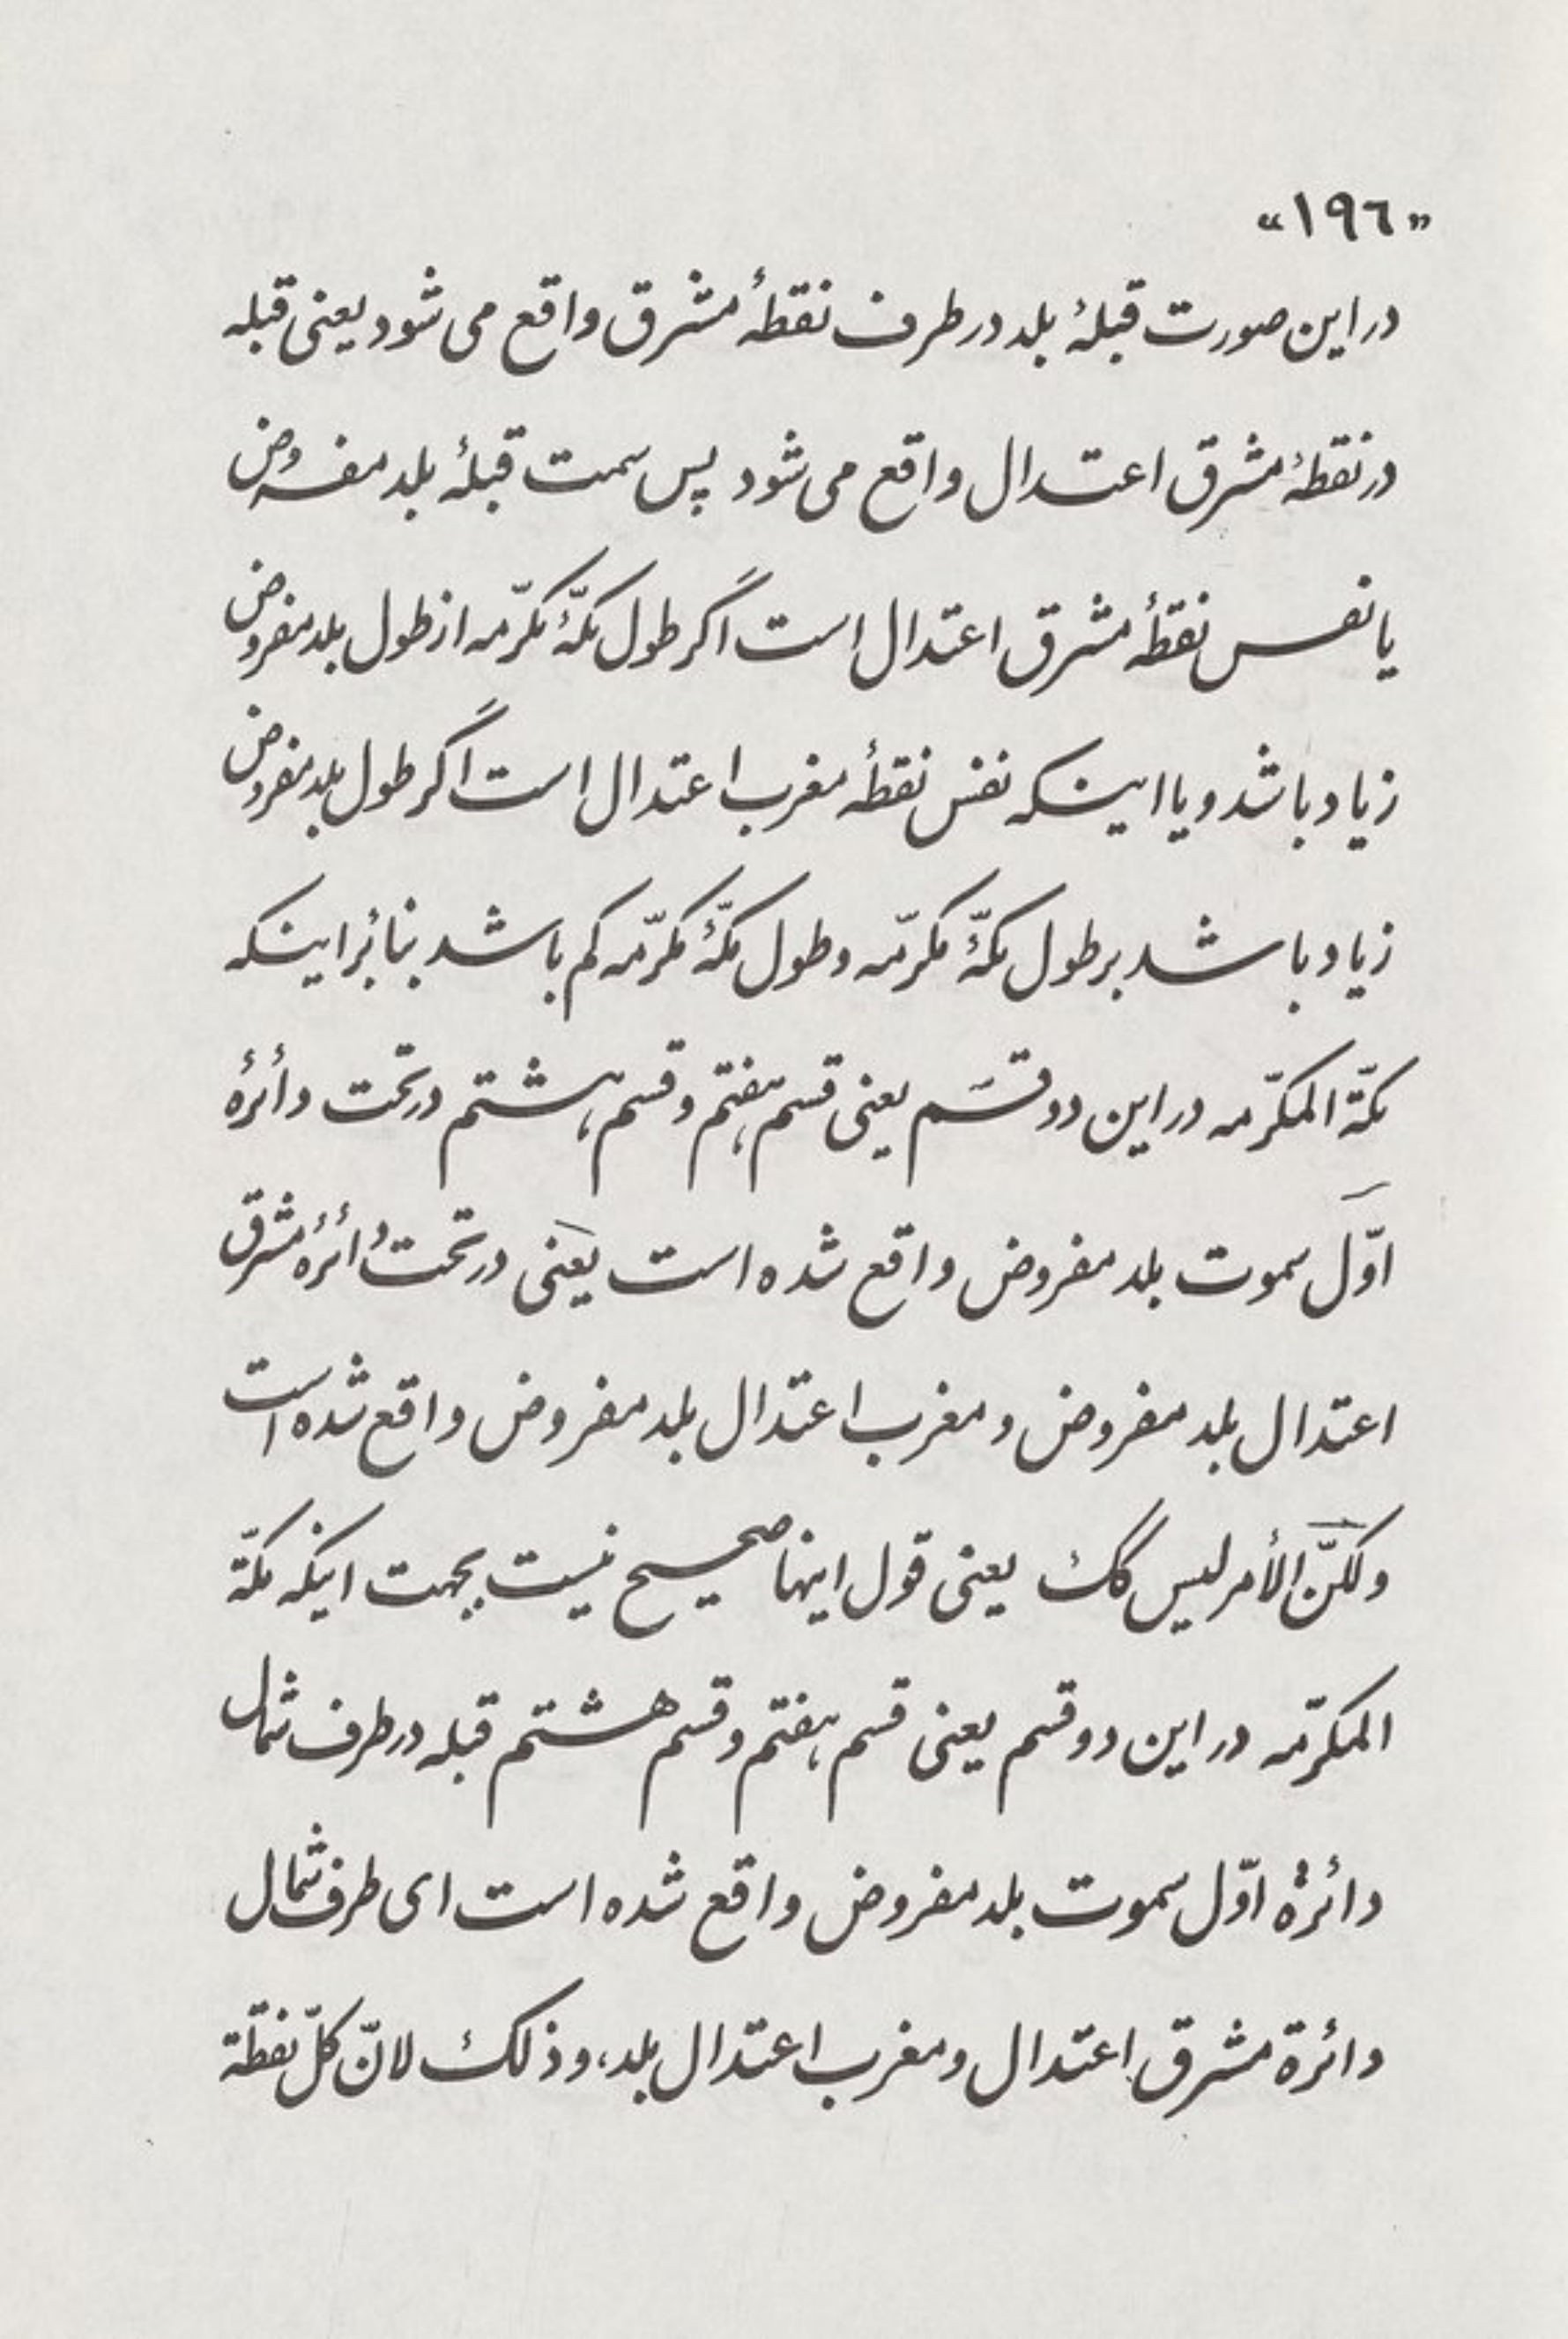 «١٩٦»
در این صورت قبلهٔ بلد در طرف نقطهٔ مشرق واقع می شود یعنی قبله
در نقطهٔ مشرق اعتدال واقع می شود پس سمت قبلهٔ بلد مفروض
یا نفس نقطهٔ مشرق اعتدال است اگر طول مکّهٔ مکرّمه از طول بلد مفروض
زیاد باشد و یا اینکه نفس نقطهٔ مغرب اعتدال است اگر طول بلد مفروض
زیاد باشد بر طول مکّهٔ مکرّمه و طول مکّهٔ مکرّمه کم باشد بنا بر اینکه
مکّة المکرّمه در این دو قسم یعنی قسم هفتم و قسم هشتم در تحت دائرهٔ
اوّل سموت بلد مفروض واقع شده است یعنی در تحت دائرهٔ مشرق
اعتدال بلد مفروض و مغرب اعتدال بلد مفروض واقع شده است
ولکنّ الأمر لیس کک یعنی قول اینها صحیح نیست بجهت اینکه مکّة
المکرّمه در این دو قسم یعنی قسم هفتم و قسم هشتم قبله در طرف شمال
دائرهٔ اوّل سموت بلد مفروض واقع شده است ای طرف شمال
دائرة مشرق اعتدال و مغرب اعتدال بلد، و ذلک لانّ کلّ نقطة